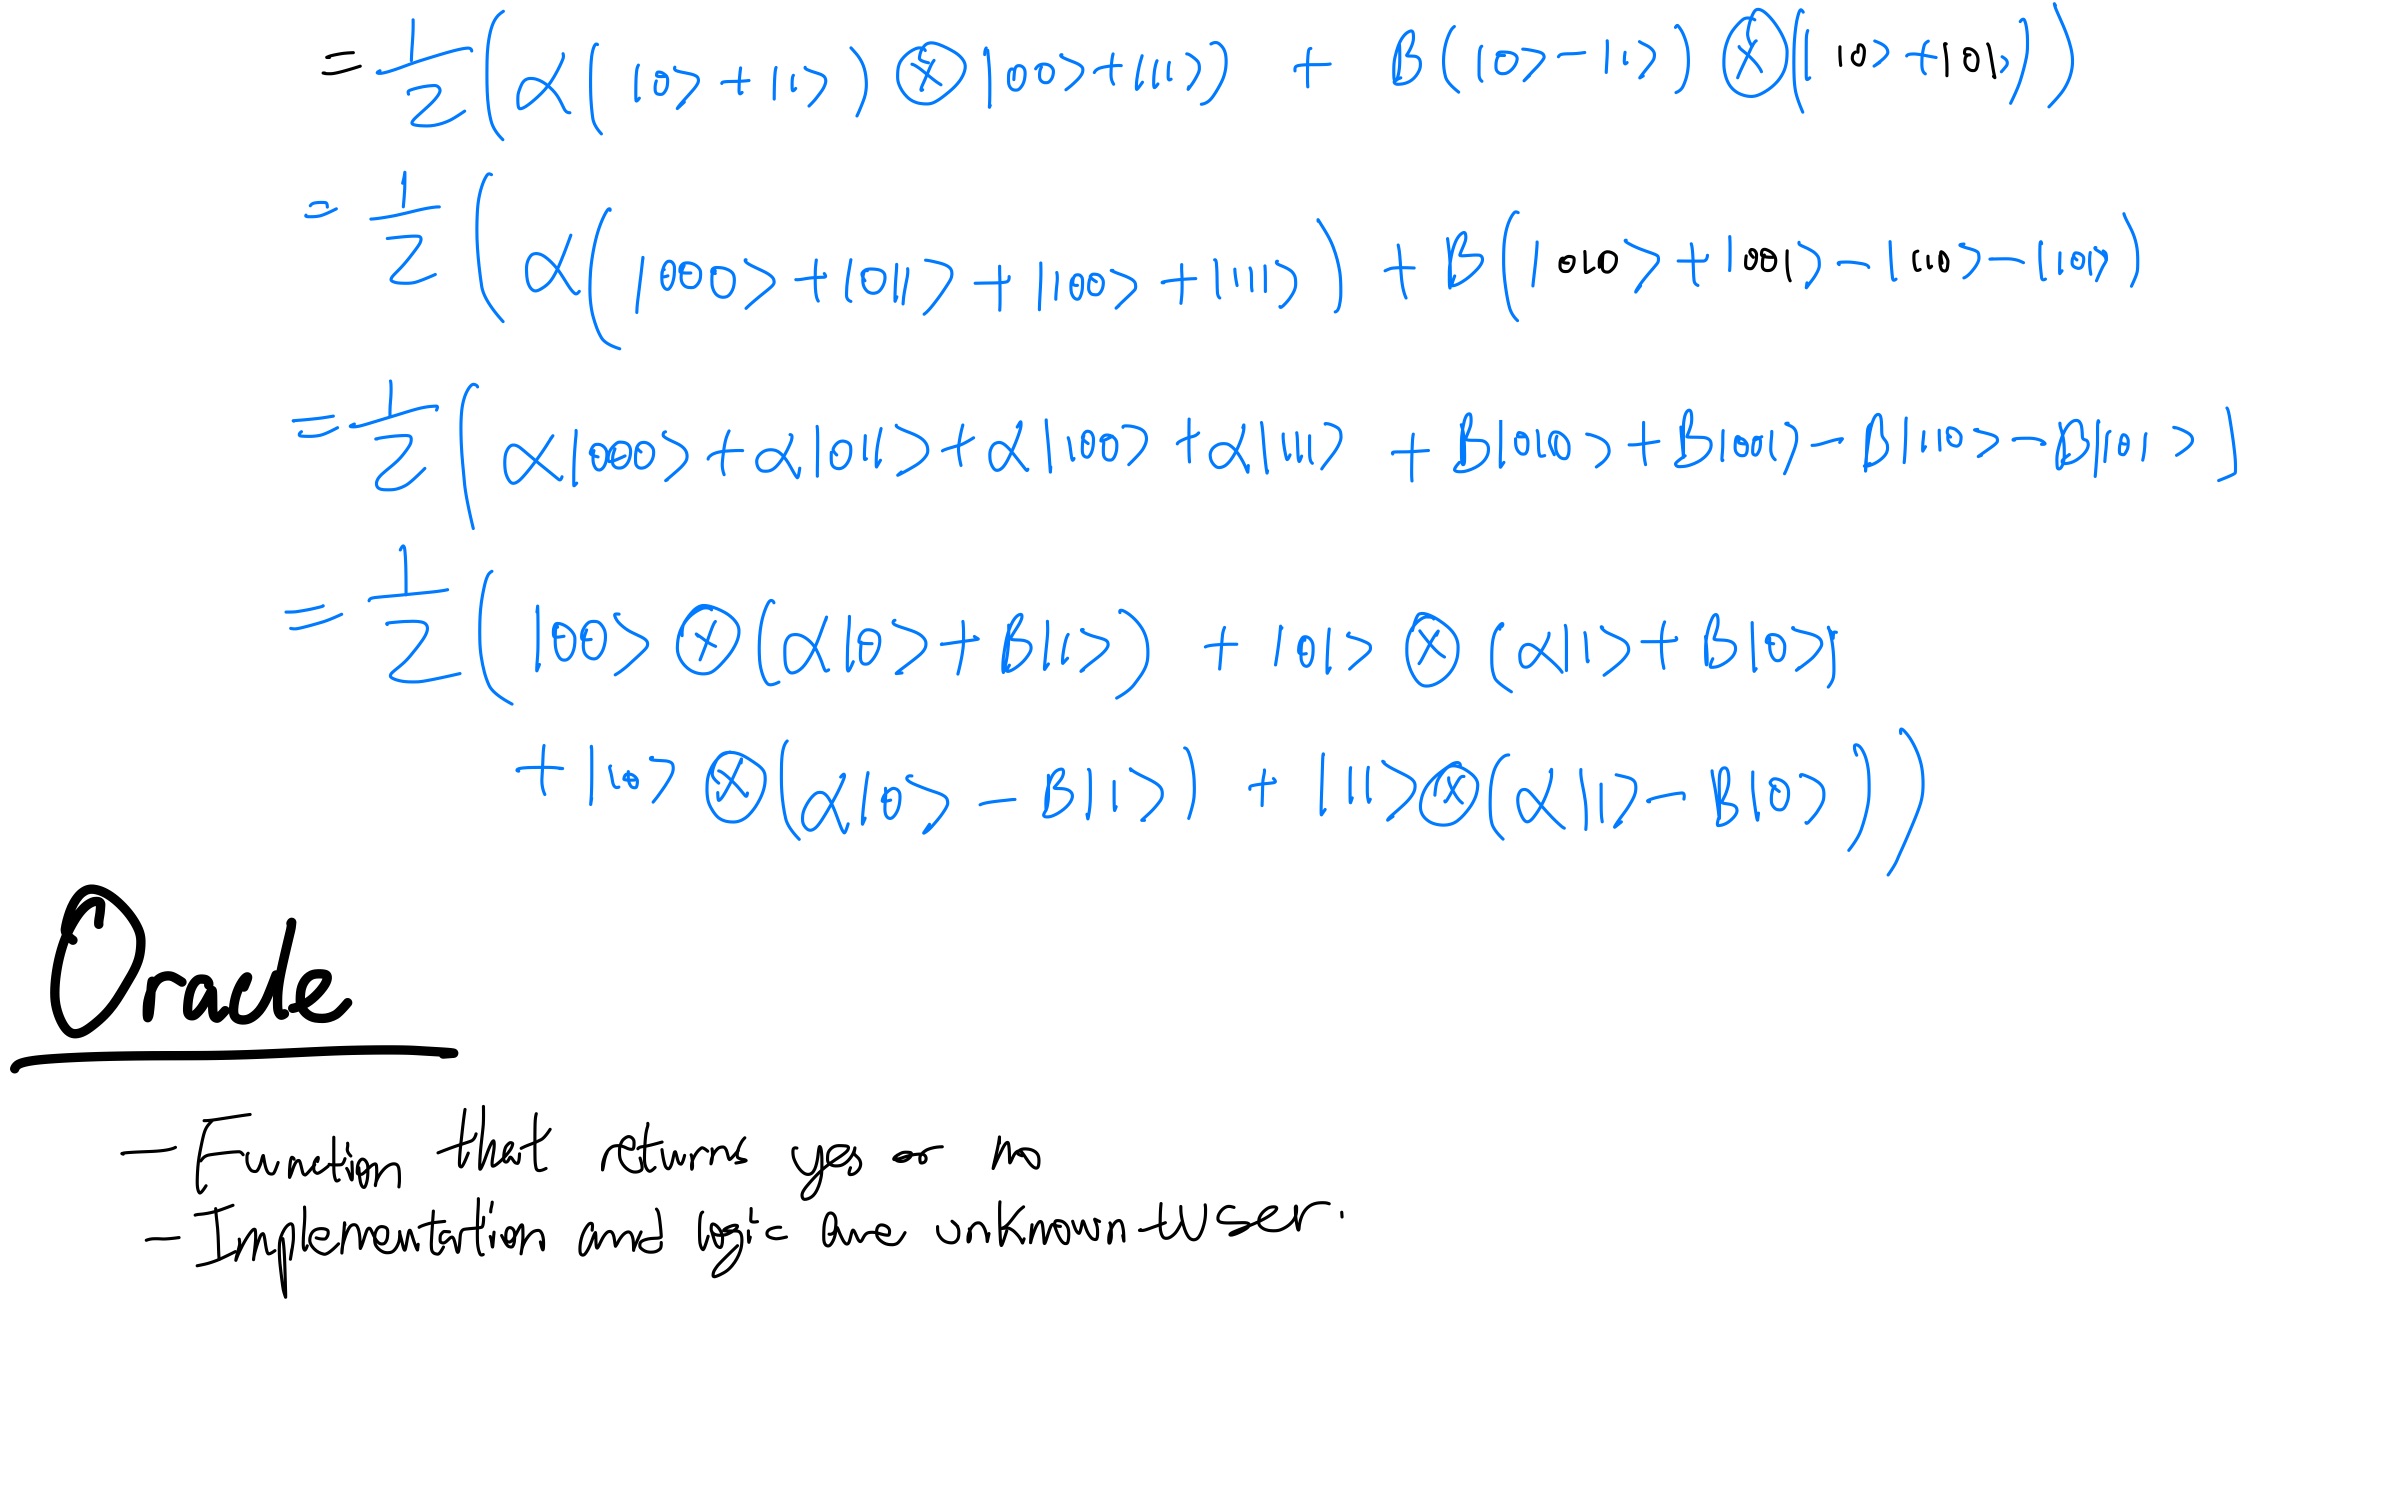 = 1/2 (α(|0> + |1>) ⊗ |00> + |11>) + β(|0> - |1>) ⊗ (|10> + |01>))
= 1/2 (α(|000> + |011> + |100> + |111>) + β(|010> + |001> - |110> - |101>)
= 1/2 (α|000> + α|011> + α|100> + α|111> + β|010> + β|001> - β|110> - β|101>)
= 1/2 (|00> ⊗ (α|0> + β|1>) + |01> ⊗ (α|1> + β|0>)
+ |10> ⊗ (α|0> - β|1>) + |11> ⊗ (α|1> - β|0>))
Oracle
- Function that returns yes or no
- Implementation and logic are unknown to user.